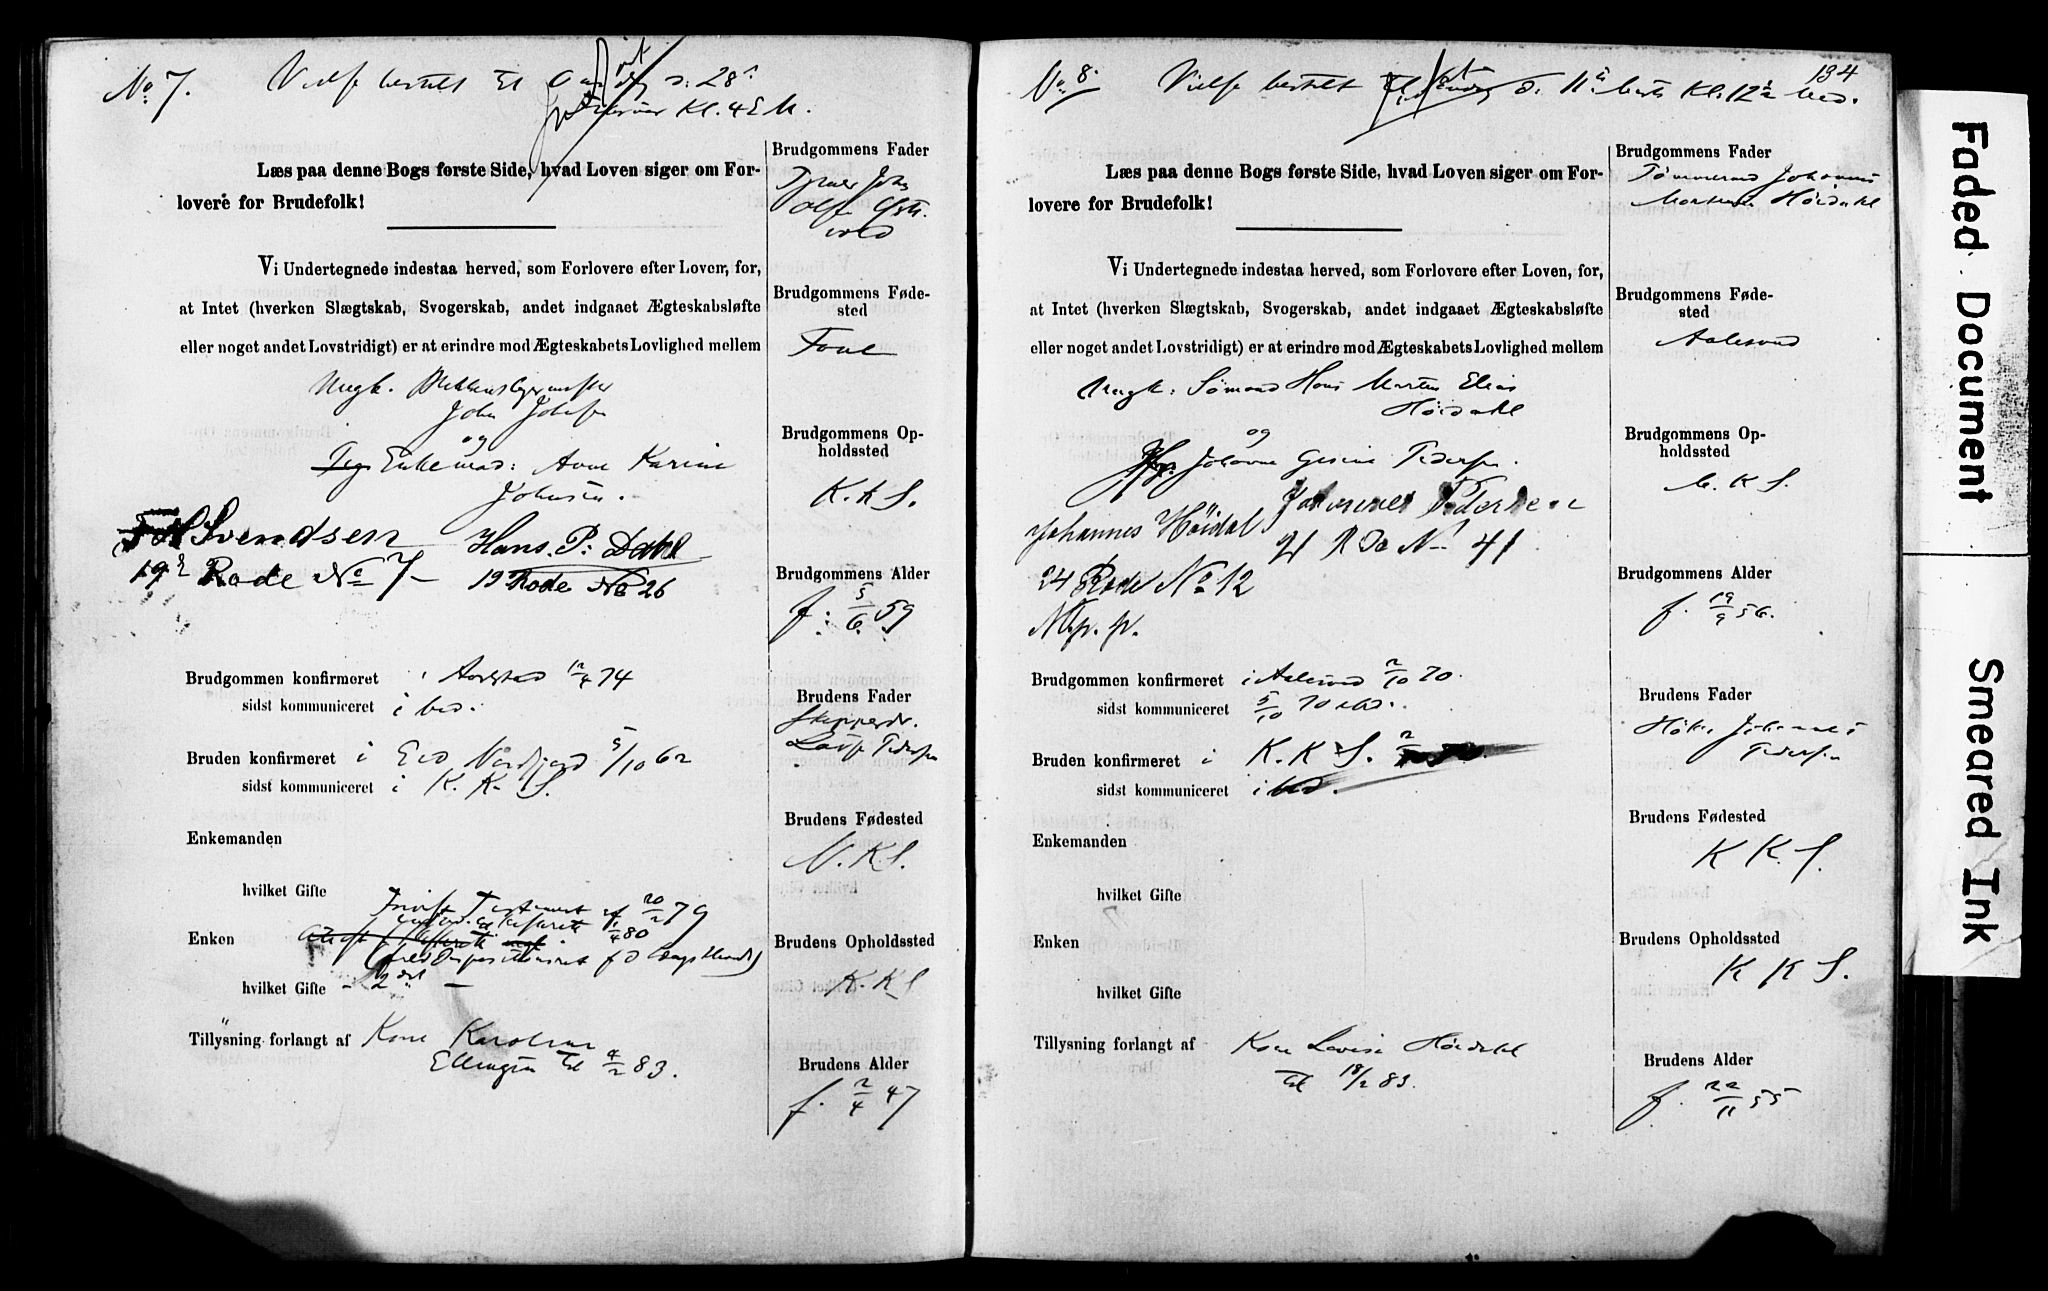 No 7. Vielse bestilt til d: 28de
Februar Kl. 4 E M.
Læs paa denne Bogs første Side, hvad Loven siger om For-
lovere for Brudefolk!
Vi Undertegnede indestaa herved, som Forlovere efter Loven, for,
at Intet (hverken Slægtskab, Svogerskab, andet indgaaet Ægteskabsløfte
eller noget andet Lovstridigt) er at erindre mod Ægteskabets Lovlighed mellem
Ungk.
John Johnsen
og
Enkemad: Anne Karine
Johnsen.
Svendsen Hans. P: Dahl
19de Rode No 7 19 Rode No 26
Brudgommen konfirmeret i 12/4 74
sidst kommuniceret i
Bruden konfirmeret i Eid Nordfjord 5/10 62
sidst kommuniceret i K. K. S.
Enkemanden
hvilket Gifte
20/2 79
Enken 1/4 80
hvilket Gifte - 2det -
Tillysning forlangt af Kone Karoline
Ellingsen til 4/2 83.
Brudgommens Fader
John
Brudgommens Føde-
sted
Brudgommens Op-
holdssted
K. K. S.
Brudgommens Alder
f: 5/6 59
Brudens Fader
Skipperdr.
Peders
Brudens Fødested
N. K. S.
Brudens Opholdssted
K. K. S
Brudens Alder
f. 2/4 47
No 8. Vielse bestilt d. 11te Marts Kl. 12 1/2 Med.
134
Læs paa denne Bogs første Side, hvad Loven siger om For-
lovere for Brudefolk!
Vi Undertegnede indestaa herved, som Forlovere efter Loven, for,
at Intet (hverken Slægtskab, Svogerskab, andet indgaaet Ægteskabsløfte
eller noget andet Lovstridigt) er at erindre mod Ægteskabets Lovlighed mellem
Ungk: Sømand Hans Martin Elias
Høidahl
og
Pige: Johanne Gesine Pedersen.
Johannes Høidal Johannes Pedersen
21 Rode No 41
24 Rode No 12
M. p. p.
Brudgommen konfirmeret i Aalesund 2/10 70.
sidst kommuniceret 5/10 70 ibid.
Bruden konfirmeret i K. K. S. 2/
sidst kommuniceret i
Enkemanden
hvilket Gifte
Enken
hvilket Gifte
Tillysning forlangt af Kone Lovise Høidahl
til 18/2 83.
Brudgommens Fader
Tømmermand Johannes
Høidahl
Brudgommens Føde-
sted
Aalesund
Brudgommens Op-
holdssted
K. S.
Brudgommens Alder
f. 19/9 56.
Brudens Fader
Høker Johannes
Pedersen
Brudens Fødested
K. K. S.
Brudens Opholdssted
K K S.
Brudens Alder
f. 22/11 55
Faded Document
Smeared Ink